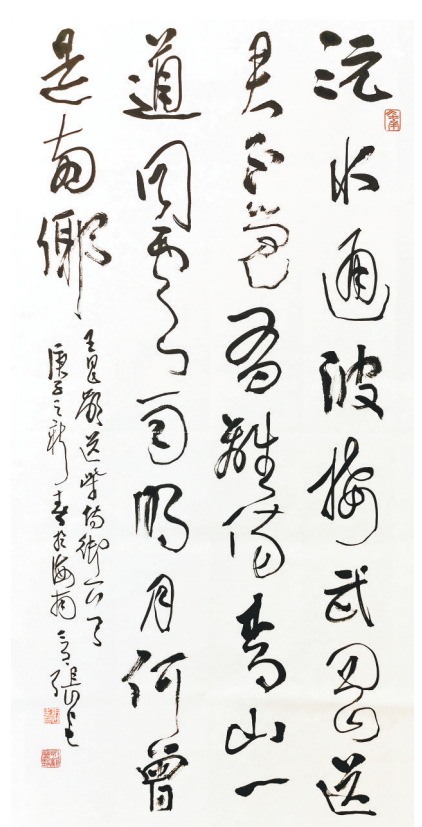 沅水通波接武岡送
君不覺有離傷青山一
道同雲雨明月何曾
是兩鄉
王昌齡送柴侍御一首
庚子之新春於海南